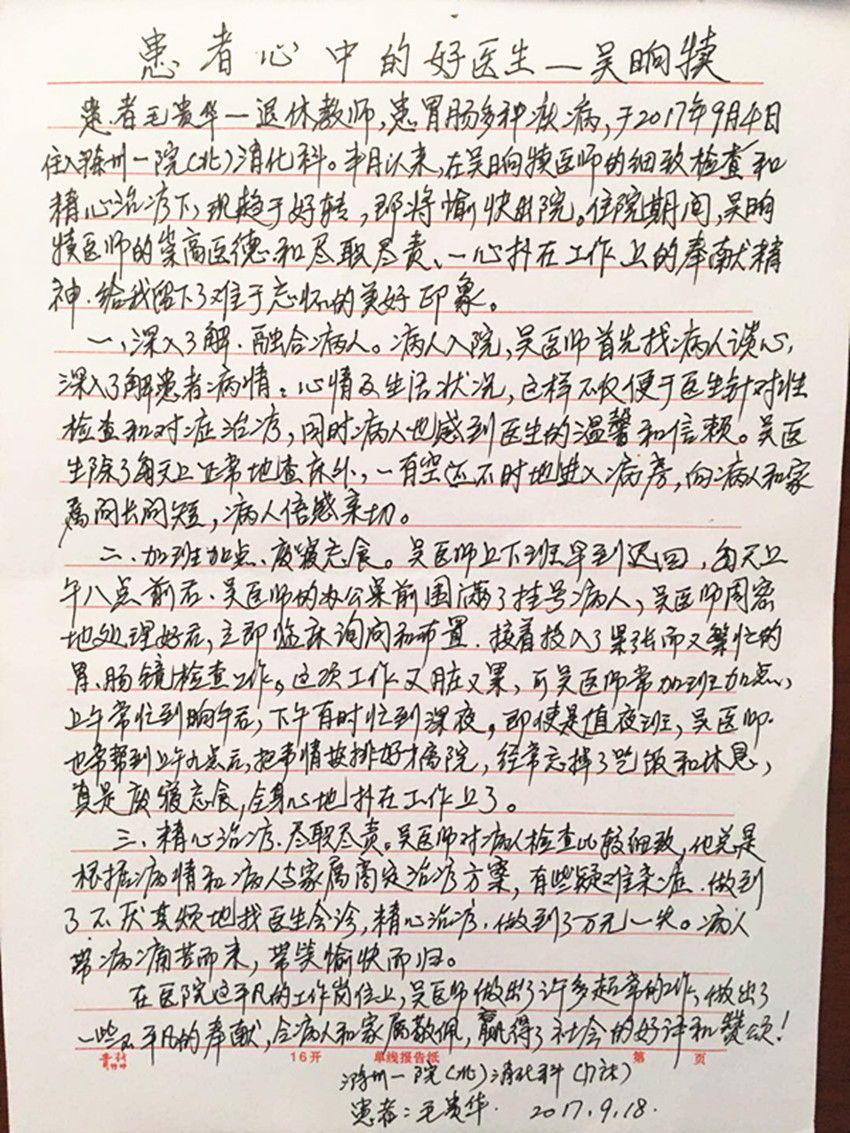 患者心中的好医生一吴晌犊
患者毛贵华一退休教师,患胃肠多种疾病,于2017年9月4日
住入滁州一院(北)消化科。半月以来,在吴晌犊医师的细致检查和
精心治疗下,现趋于好转,即将愉快出院。住院期间,吴晌
犊医师的崇高医德和尽职尽责、一心扑在工作上的奉献精
神.给我留下了难于忘怀的美好印象。
一、深入了解.融合病人。病人入院,吴医师首先找病人谈心,
深入了解患者病情:心情及生活状况,这样不仅便于医生针对性
检查和对症治疗,同时病人也感到医生的温馨和信赖。吴医
生除了每天上正常地查床外,一有空还不时地进入病房,向病人和家
属问长问短,病人倍感亲切。
二.加班加点、废寝忘食。吴医师上下班早到迟回,每天上
午八点前后、吴医师的办公桌前围满了挂号病人,吴医师周密
地处理好后,立即临床询问和布置.接着投入了紧张而又繁忙的
胃、肠镜检查工作。这项工作又脏又累,可吴医师常加班加点、
上午常忙到晌午后,下午有时忙到深夜。即使是值夜班,吴医师
也常帮到上午九点后,把事情安排好才离院,经常忘掉了吃饭和休息,
真是废寝忘食,全身心地扑在工作上了。
三、精心治疗.尽职尽责。吴医师对病人检查比较细致,他总是
根据病情和病人与家属商定治疗方案,有些疑难杂症.做到
了不厌其烦地找医生会诊,精心治疗.做到了万无一失。病人
带病痛苦而来,带笑愉快而归。
在医院这平凡的工作岗位上,吴医师做出了许多超常的工作,做出了
一些不平凡的奉献,令病人和家属敬佩,赢得了社会的好评和赞颂!
16开 单线报告纸 第 页
滁州一院(北)消化科
患者:毛贵华. 2017.9.18.